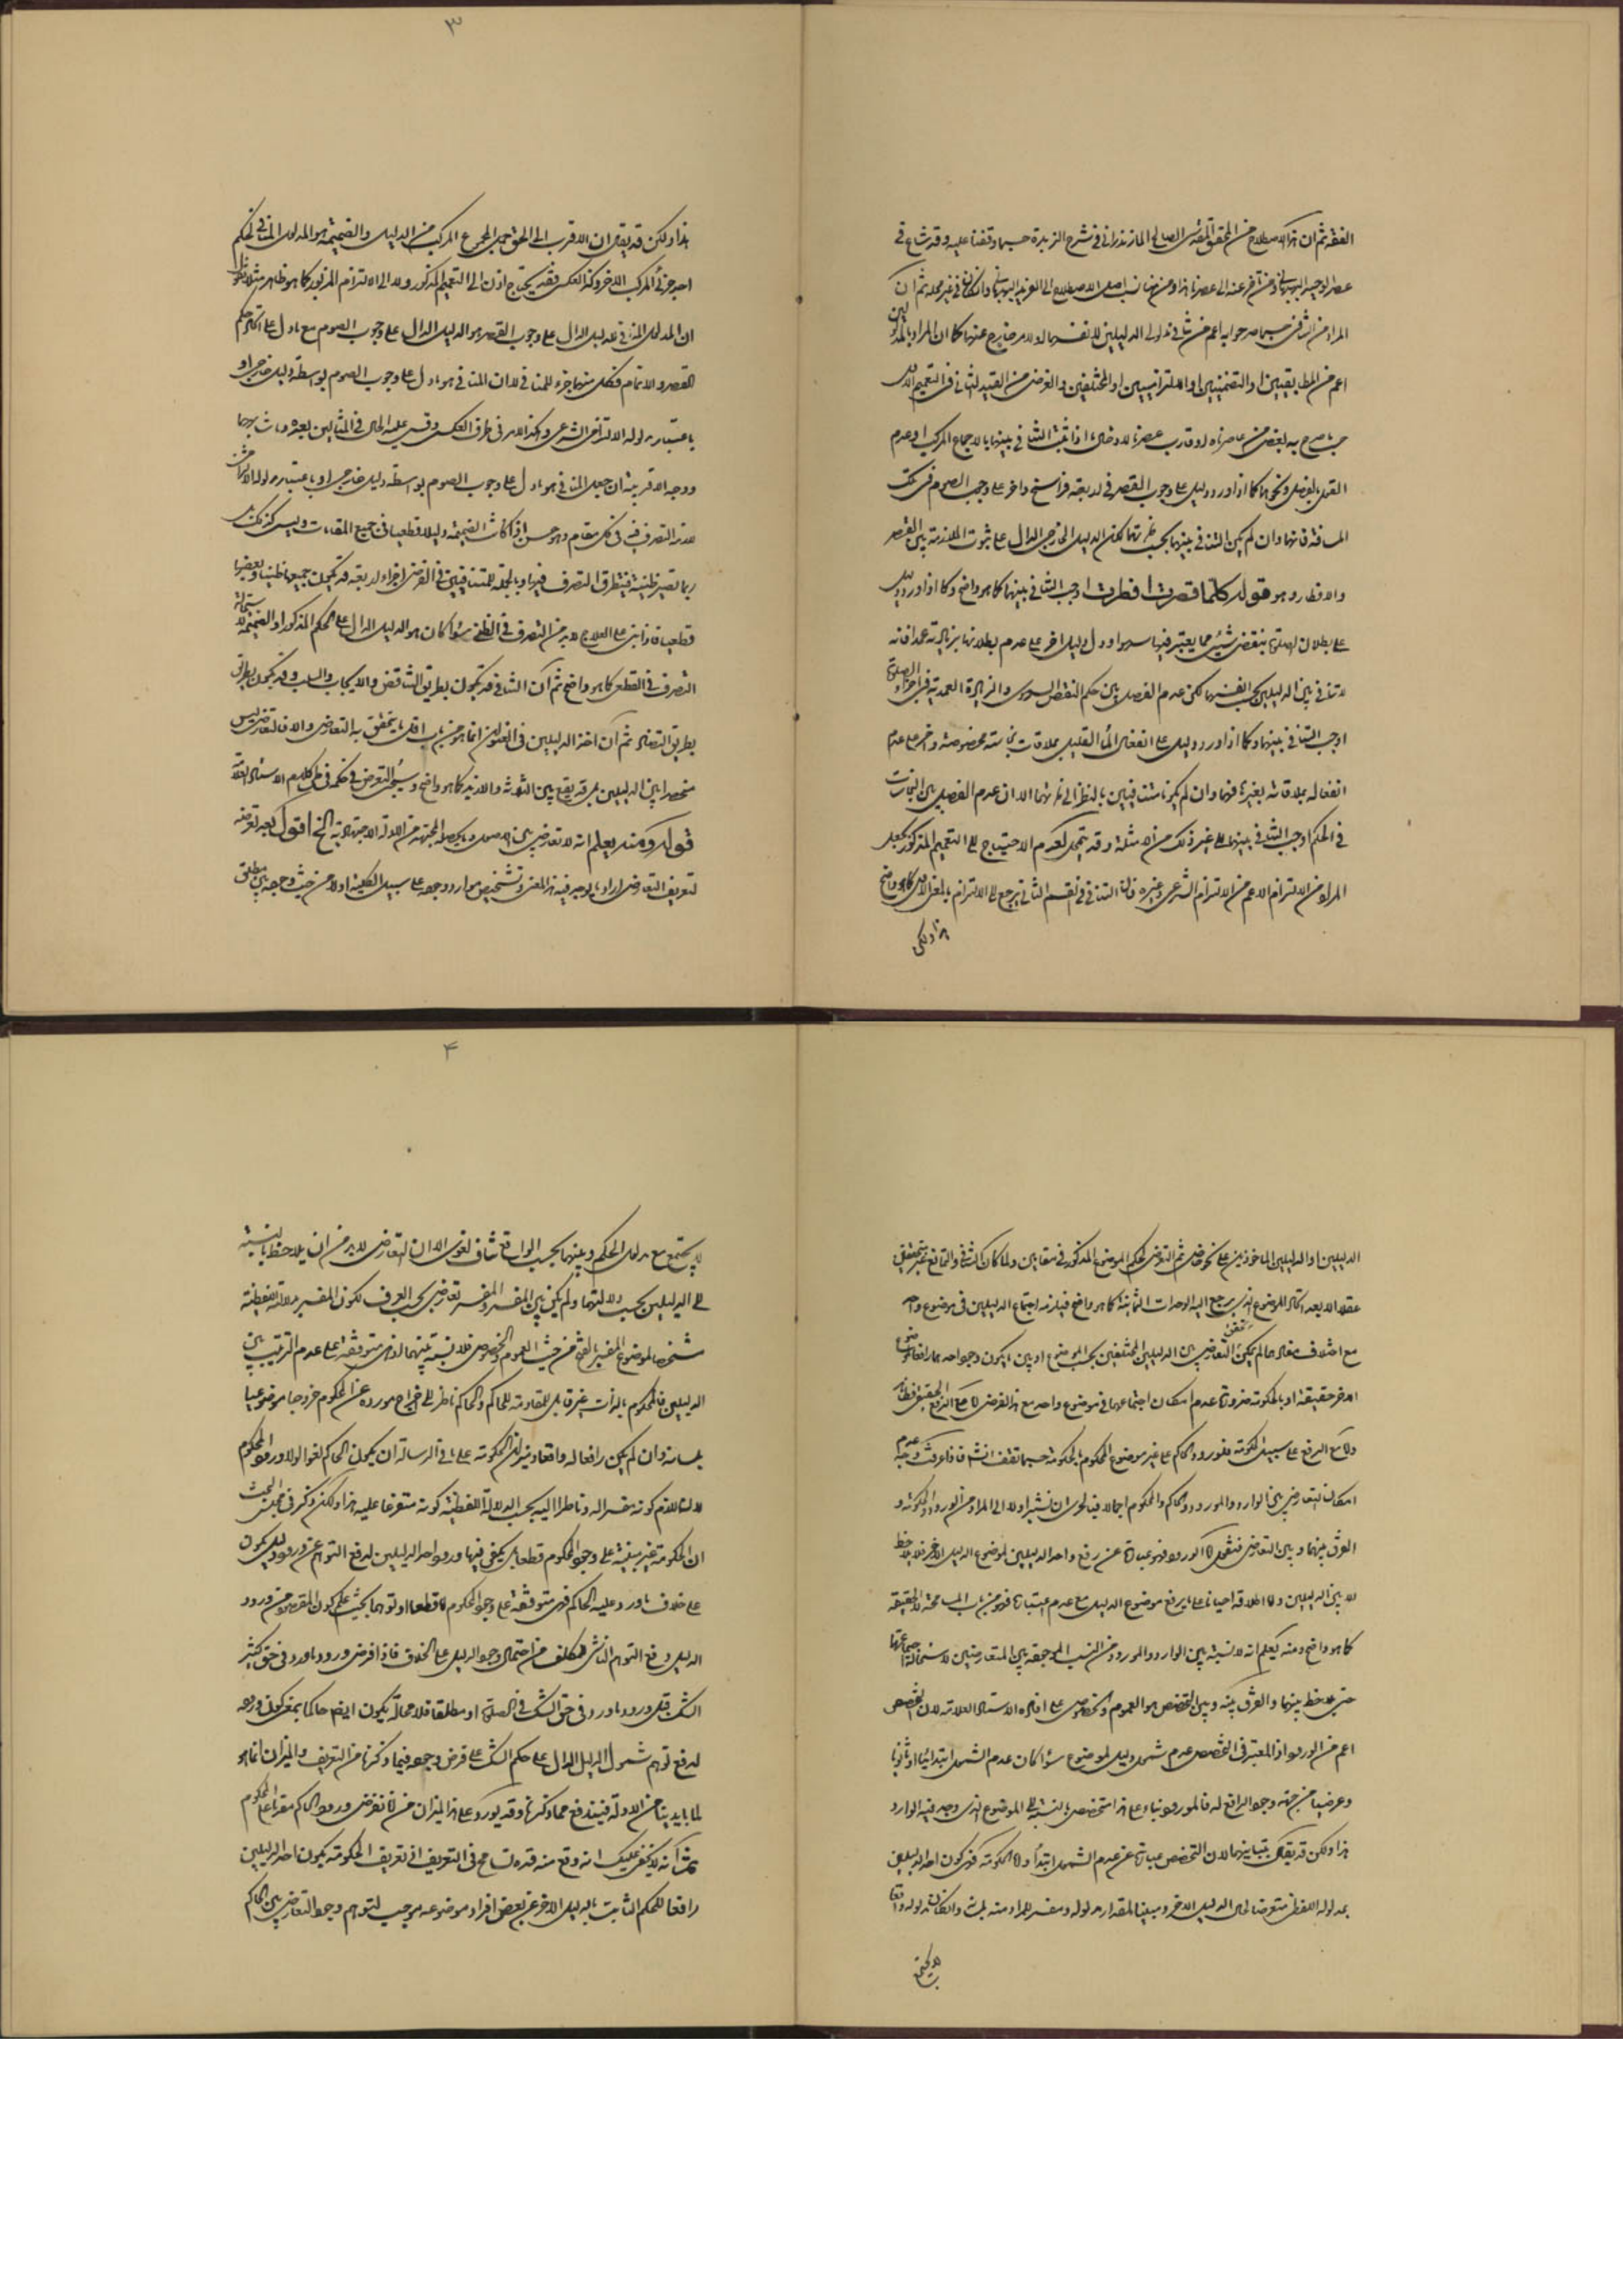 الفقه ثم ان هذا الاصطلاح من المحقق المقدس الصالح المازندراني في شرح الزبدة حسبما وقفنا عليه وقد شاع في
عصر الوحيد البهبهاني ومن تأخر عنه الى عصرنا هذا ومن هنا نسب اصل الاصطلاح الى الفريد البهبهاني وان كان في غير محله ثم ان
المراد من التنافي حسبما صرحوا به اعم من تنافي مدلولي الدليلين لانفسهما او لامر خارج عنهما كما ان المراد بالمدلولين
اعم من المطابقيين او التضمنيين او الالتزاميين او المختلفين والغرض من القيد الثاني في التعميم الاول
حسبما صرح به بعض من عاصرناه او قارب عصرنا لادخال ما اذا ثبت التنافي بينهما بالاجماع المركب او عدم
القول بالفصل ونحوهما كما اذا ورد دليل على وجوب القصر في اربعة فراسخ واخر على وجوب الصوم في تلك
المسافة فانهما وان لم يكن التنافي بينهما بحسب ذاتهما لكن الدليل الخارجي الدال على ثبوت الملازمة بين القصر
والافطار وهو قوله كلما قصرت افطرت اوجب التنافي بينهما كما هو واضح وكما اذا ورد دليل
على بطلان الصلوة بنقص شيء مما يعتبر فيها سهوا ودل دليل اخر على عدم بطلانها بزيادته عمدا فانه
لا تنافي بين الدليلين بحسب انفسهما لكن عدم الفصل بين حكم النقص السهوي والزيادة العمدية في اجزاء الصلوة
اوجب التنافي بينهما وكما اذا ورد دليل على انفعال الماء القليل بملاقات نجاسة مخصوصة واخر على عدم
انفعاله بملاقاته بغيرها فهما وان لم يكونا متنافيين بالنظر الى ذاتهما الا ان عدم الفصل بين النجاسات
في الحكم اوجب التنافي بينهما الى غير ذلك من الامثلة وقد يتخيل لعدم الاحتياج الى التعميم المذكور بجعل
المراد من الالتزام الاعم من الالتزام الشرعي وغيره فان التنافي في القسم الثاني يرجع الى الالتزام بالمعنى الاعم كما هو واضح
هذا ولكن
٣
هذا ولكن قد يقال ان الاقرب الى الحق جعل المجموع المركب من الدليل والضميمة هو المدلول المنافي لحكم
احد جزئي المركب الاخر وكذا العكس فلا يحتاج اذن الى التعميم المذكور ولا الى الالتزام المزبور كما هو ظاهر مثلا نقول
ان المدلول المنافي للدليل الدال على وجوب القصر هو الدليل الدال على وجوب الصوم مع ما دل على اتحاد حكم
القصر والاتمام فكل منهما جزء للمنافي لا ان المنافي هو ما دل على وجوب الصوم بواسطة دليل خارجي او
باعتبار مدلوله الالتزامي الشرعي وهكذا الامر في طرف العكس وقس عليه الحال في المثالين بعده وما شابهها
ووجه الاقربية ان جعل المنافي هو ما دل على وجوب الصوم بواسطة دليل خارجي او باعتبار مدلوله الالتزامي
لازمه التصرف فيه في كل مقام وهو حسن اذا كانت الضميمة دليلا قطعيا في جميع المقامات وليس كذلك بل
ربما تصير ظنية فيتطرق التصرف فيها وبالجملة للمتنافيين في الفرض اجزاء اربعة قد تكون جميعها ظنيا وبعضها
قطعيا فاذا بنى على العلاج لا بد من التصرف في الظني سواء كان هو الدليل الدال على الحكم المذكور او الضميمة لاستحالة
التصرف في القطع كما هو واضح ثم ان التنافي قد يكون بطريق التناقض والايجاب والسلب وقد يكون بطريق
بطريق التضاد ثم ان اخذ الدليلين في العنوان انما هو من باب اقل ما يتحقق به التعارض والا فالتعارض ليس
منحصرا بين الدليلين بل قد يقع بين الثلاثة والازيد كما هو واضح وسيجئ التعرض في حكمه في طي كلام الاستاد العلامة
قوله ومنه يعلم انه لا تعارض بين الاصول وما يحصله المجتهد من الادلة الاجتهادية الخ اقول بعد تعرضه
لتعريف التعارض اراد ما يوجد فيه هذا المعنى وتشخيص موارد وجوده على سبيل الكلية اولا من حيث وجوده بين مطلق
الدليلين او الدليلين الماخوذين على نحو خاص ثم التعرض لحكم الموضوع المذكور في مقامين ولما كان التنافي والتمانع غير متحقق
عقلا الا بعد اتحاد الموضوع الذي يرجع اليه الوحدات الثمانية كما هو واضح فيلزمه اجتماع الدليلين في موضوع واحد
مع اختلاف مفادهما لم يمكن تحقق التعارض بين الدليلين المختلفين بحسب الموضوع او بين ما يكون وجود احدهما رافعا لموضوع
الاخر حقيقة او بالحكومة ضرورة عدم امكان اجتماعهما في موضوع واحد مع هذا الفرض اما مع الرفع الحقيقي فظاهر
واما مع الرفع على سبيل الحكومة فلورود الحاكم على غير موضوع المحكوم بالحكومة حسبما تقف انشاء فاذا عرفت وجه عدم
امكان التعارض بين الوارد والمورود والحاكم والمحكوم اجمالا فبالحري ان نشير اولا الى المراد من الورود والحكومة و
الفرق بينهما وبين التعارض فنقول اما الورود فهو عبارة عن رفع واحد الدليلين لموضوع الدليل الاخر فلا يلاحظ
الا بين الدليلين واما اطلاقه احيانا على ما يرفع موضوع الدليل مع عدم اعتباره فهو من باب المسامحة لا الحقيقة
كما هو واضح ومنه يعلم انه لا نسبة بين الوارد والمورود من النسب الموجودة بين المتعارضين لاستحالة اجتماعهما
حتى يلاحظ بينهما والفرق بينه وبين التخصص هو العموم والخصوص على افاده الاستاد العلامة لان التخصص
اعم من الورود اذ المعتبر في التخصص عدم شمول دليل لموضوع سواء كان عدم الشمول ابتدائيا او ثانويا
وعرضيا من جهة وجود الرافع له فالمورود بناء على هذا متخصص بالنسبة الى الموضوع الذي وجد فيه الوارد
هذا ولكن قد يقال بتباينهما لان التخصص عبارة عن عدم الشمول ابتداء واما الحكومة فهي كون احد الدليلين
بمدلوله اللفظي متعرضا لحال الدليل الاخر ومبينا لمقدار مدلوله ومفسر للمراد منه بلسانه وان كان مدلوله واقعا
لا يجتمع
٤
لا يجتمع مع مدلول المحكوم وبينهما بحسب الواقع تناف لغوي الا ان التعارض لا بد من ان يلاحظ بالنسبة
الى الدليلين بحسب دلالتهما ولم يكن بين المفسر والمفسر تعارض بحسب العرف لكون المفسر بدلالته اللفظية
شخص لموضوع المفسر بالفتح من حيث العموم والخصوص فلا نسبة بينهما اذ هي متوقفة على عدم الترتيب بين
الدليلين فالمحكوم بالذات غير قابل للمقاومة للحاكم والحاكم ناظر الى اخراج مورده عن المحكوم خروجا موضوعيا
بلسانه وان لم يكن رافعا له واقعا وميزان الحكومة على ما في الرسالة ان يكون الحاكم لغوا لولا ورود المحكوم
لاستلزام كونه مفسرا له وناظرا اليه بحسب الدلالة اللفظية كونه متفرعا عليه هذا ولكن ذكر في مجلس البحث
ان الحكومة غير مبنية على وجود المحكوم قطعا بل يكفي فيها ورود احد الدليلين لدفع التوهم عن ورود دليل يكون
على خلاف ما ورد عليه الحاكم فهي متوقفة على وجود المحكوم اما قطعا او توهما بحيث علم كون المقصود من ورود
الدليل دفع التوهم الناشي للمكلف من احتمال وجود الدليل على الخلاف فاذا فرض ورود ما ورد في حق كثير
الشك قبل ورود ما ورد في حق الشك في الصلوة او مطلقا فلا محالة يكون ايضا حاكما بمعنى كون وروده
لدفع توهم شمول الدليل الدال على حكم الشك على فرض وجوده فيما ذكرنا من التعريف والميزان انما هو
لما بايدينا من الادلة فيندفع عما ذكرنا وقد يورد على هذا الميزان من ما نفرض ورود الحاكم مقدما على المحكوم
ثم انه لا يخفى عليك انه وقع منه قده تسامح في التعريف اذ تعريف الحكومة بكون احد الدليلين
رافعا للحكم الثابت بالدليل الاخر عن بعض افراد موضوعه يوجب لتوهم وجود التعارض بين الحاكم